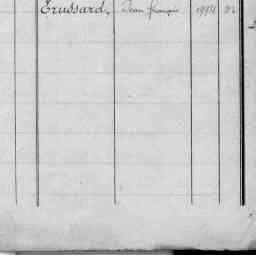 Trussard, Jean françois 1994 92